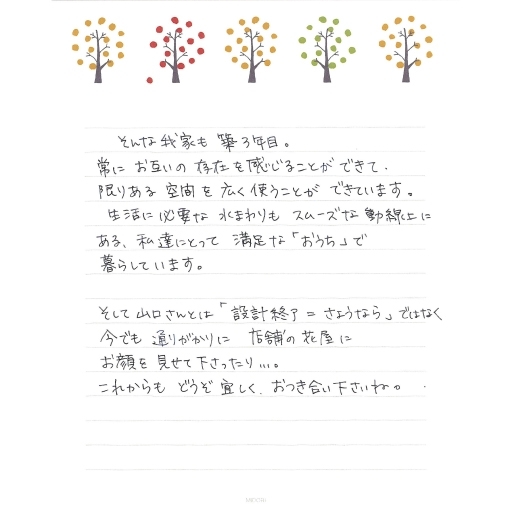 そんな我家も 築3年目。
常に お互いの 存在を感じることが できて、
限りある 空間を 広く使うことが できています。
生活に必要な 水まわりも スムーズな動線上に
ある、私達にとって 満足な「おうち」で
暮らしています。
そして山口さんとは「設計終了=さようなら」ではなく
今でも 通りがかりに 店舗の花屋に
お顔を見せて下さったり...。
これからも どうぞ宜しく、おつき合い下さいね。